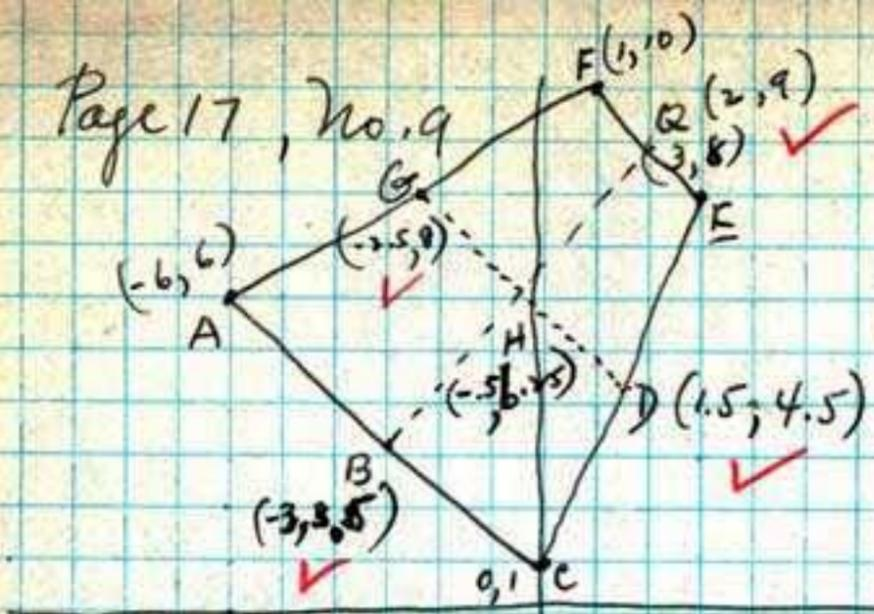 Page 17, No. 9
F (1, 10)
Q (2, 9)
(3, 8)
E
G
(-2.5, 8)
(-6, 6)
A
H
(-.5, 6.25)
D (1.5, 4.5)
B
(-3, 3.5)
0, 1 C